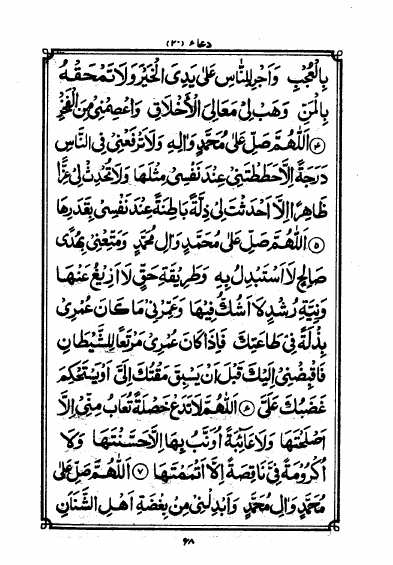 دعاء (٢٠)
بِالْعُجْبِ وَاَجْرِ لِلنَّاسِ عَلٰى يَدِىَ الْخَيْرَ وَلَا تَمْحَقْهُ
بِالْمَنِّ وَهَبْ لِىْ مَعَالِىَ الْاَخْلَاقِ وَاعْصِمْنِىْ مِنَ الْفَخْرِ
۴ اَللّٰهُمَّ صَلِّ عَلٰى مُحَمَّدٍ وَاٰلِهٖ وَلَا تَرْفَعْنِىْ فِى النَّاسِ
دَرَجَةً اِلَّا حَطَطْتَنِىْ عِنْدَ نَفْسِىْ مِثْلَهَا وَلَا تُحْدِثْ لِىْ عِزًّا
ظَاهِرًا اِلَّا اَحْدَثْتَ لِىْ ذِلَّةً بَاطِنَةً عِنْدَ نَفْسِىْ بِقَدَرِهَا
۵ اَللّٰهُمَّ صَلِّ عَلٰى مُحَمَّدٍ وَاٰلِ مُحَمَّدٍ وَمَتِّعْنِىْ بِهُدًى
صَالِحٍ لَا اَسْتَبْدِلُ بِهٖ وَطَرِيْقَةِ حَقٍّ لَا اَزِيْغُ عَنْهَا
وَنِيَّةِ رُشْدٍ لَا اَشُكُّ فِيْهَا وَعَمِّرْنِىْ مَا كَانَ عُمْرِىْ
بِذْلَةً فِىْ طَاعَتِكَ فَاِذَا كَانَ عُمْرِىْ مَرْتَعًا لِلشَّيْطَانِ
فَاقْبِضْنِىْ اِلَيْكَ قَبْلَ اَنْ يَسْبِقَ مَقْتُكَ اِلَىَّ اَوْ يَسْتَحْكِمَ
غَضَبُكَ عَلَىَّ ۶ اَللّٰهُمَّ لَا تَدَعْ خَصْلَةً تُعَابُ مِنِّىْ اِلَّا
اَصْلَحْتَهَا وَلَا عَائِبَةً اُوَنَّبُ بِهَا اِلَّا حَسَّنْتَهَا وَلَا
اُكْرُوْمَةً فِىَّ نَاقِصَةً اِلَّا اَتْمَمْتَهَا ۷ اَللّٰهُمَّ صَلِّ عَلٰى
مُحَمَّدٍ وَاٰلِ مُحَمَّدٍ وَاَبْدِلْنِىْ مِنْ بِغْضَةِ اَهْلِ الشَّنَاٰنِ
۶۸